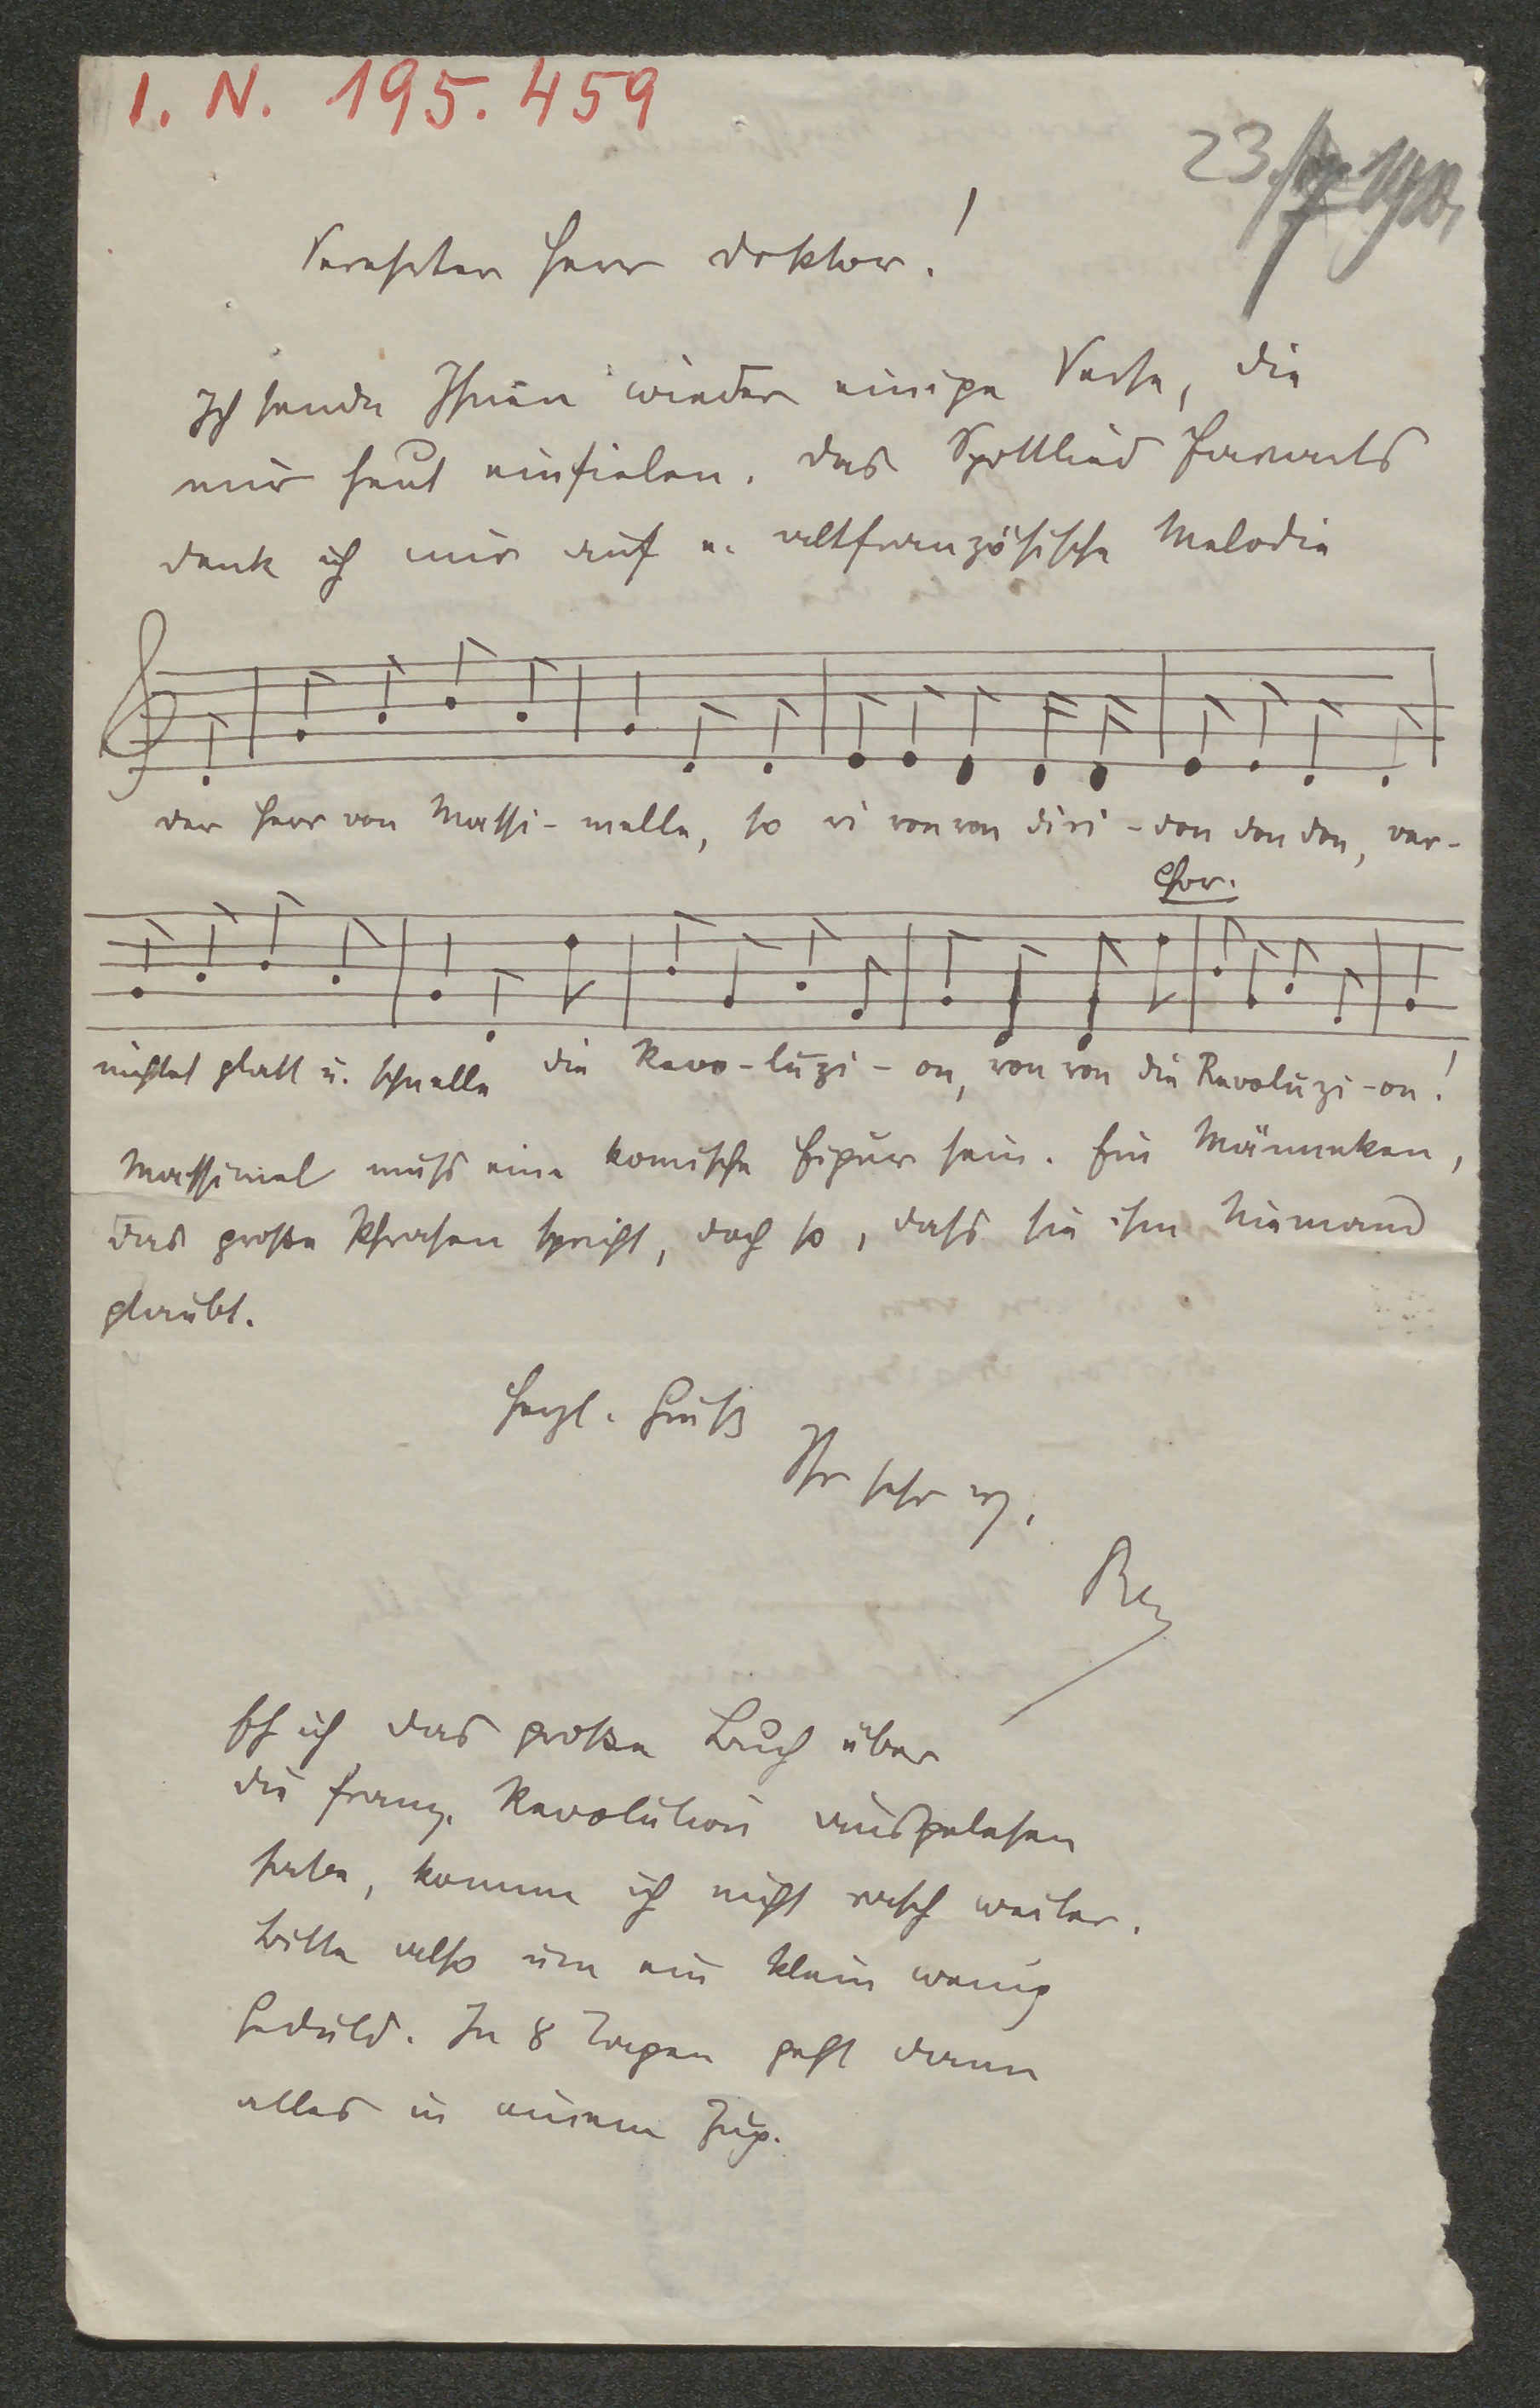 I. N. 195.459
23.
Verehrter Herr Doktor!
Ich sende Ihnen wieder einige Verse, die
mir heut einfielen. Das Spottlied Favarts
denk ich mir auf e. altfranzösische Melodie
Der Herr von Massi-melle, so ri von von diri-don don don, ver-
Chor.
nichtet glatt u. schnelle die Revo-luzi-on, von von die Revoluzi-on!
Massimel muss eine komische Figur sein. Ein Männeken,
das große Phrasen spricht, doch so, dass sie ihm Niemand
glaubt.
Herzl. Gruß
Ihr sehr erg.
Eh ich das große Buch über
die franz. Revolution ausgelesen
habe, komme ich nicht rasch weiter.
Bitte also um ein klein wenig
Geduld. In 8 Tagen geht dann
alles in einem Zug.